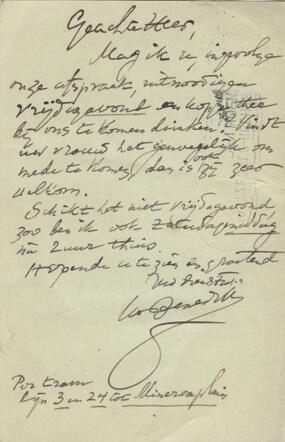 Geachte Heer,
Mag ik u, ingevolge
onze afspraak, uitnoodigen
Vrijdagavond een kopje thee
bij ons te komen drinken. Vindt
Uw vrouw het genoegelijk om
mede te komen, dan is ook zeer
welkom.
Schikt het niet Vrijdagavond
zoo ben ik ook Zaterdagmiddag
na 2 uur thuis.
Hopende u te zien en groetend
Uw
Per tram
lijn 3 en 24 tot Minervaplein